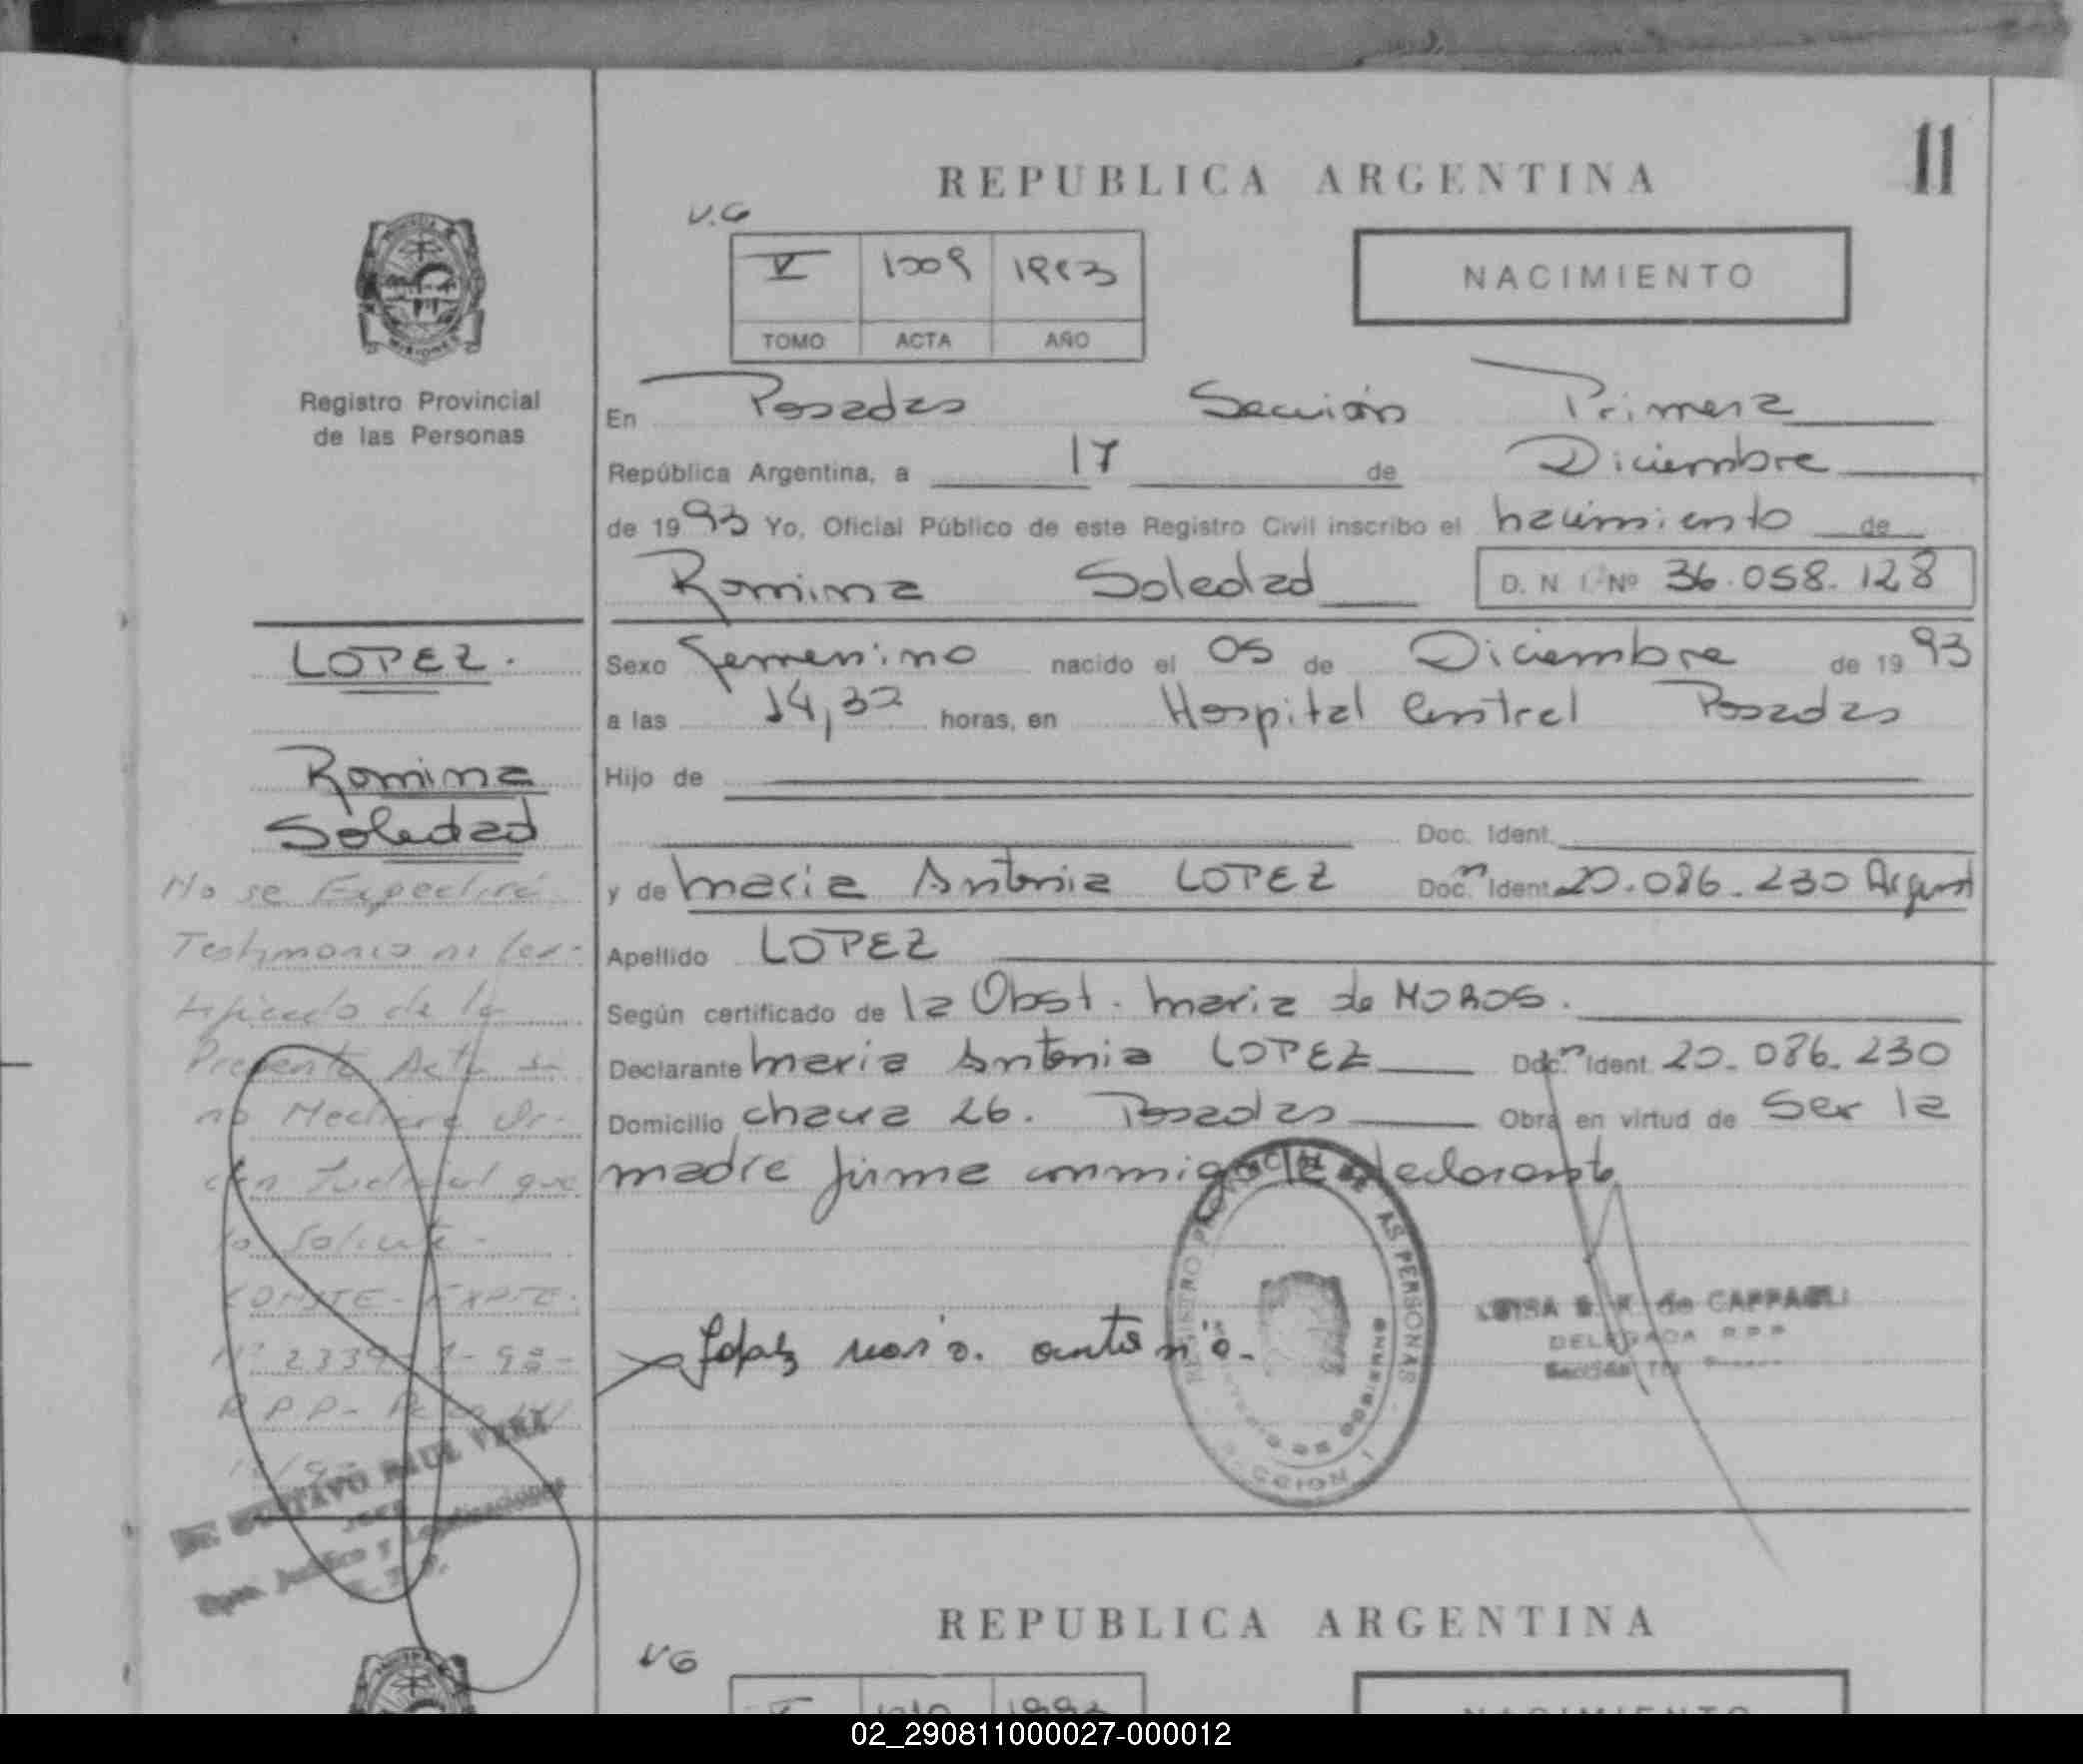 11
REPUBLICA ARGENTINA
V.G
V 1009 1993
TOMO ACTA AÑO
NACIMIENTO
MISIONES
Registro Provincial
de las Personas
En Posadas Sección Primera
República Argentina, a 17 de Diciembre
de 1993 Yo, Oficial Público de este Registro Civil inscribo el nacimiento de
Romina Soledad D. N. I. Nº 36.058.128
LOPEZ.
Romina
Soledad
Sexo femenino nacido el 05 de Diciembre de 1993
a las 14,32 horas, en Hospital Central Posadas
Hijo de
Doc. Ident.
y de Maria Antonia LOPEZ Doc. Ident. 20.086.230 Argent
Apellido LOPEZ
Según certificado de la Obst. Maria de MOROS.
Declarante Maria Antonia LOPEZ Doc. Ident. 20.086.230
Domicilio chacra 26. Posadas Obra en virtud de Ser la
madre firma conmigo la declarante
No se Expedirá
Testimonio ni Cer-
tificado de la
Presente Acta si
no Mediare Or-
den Judicial que
lo Solicite-
CONSTE- EXPTE.
Nº 2339
R P P-
GUSTAVO RAUL VERA
JEFE
Dpto. Jurídico y Legalizaciones
Lopez maria antonia.
REGISTRO PROVINCIAL DE LAS PERSONAS
SECCION I
de CAPPAGLI
DELEGADA R P P
REPUBLICA ARGENTINA
VG
V 1010 1993
NACIMIENTO
02_290811000027-000012